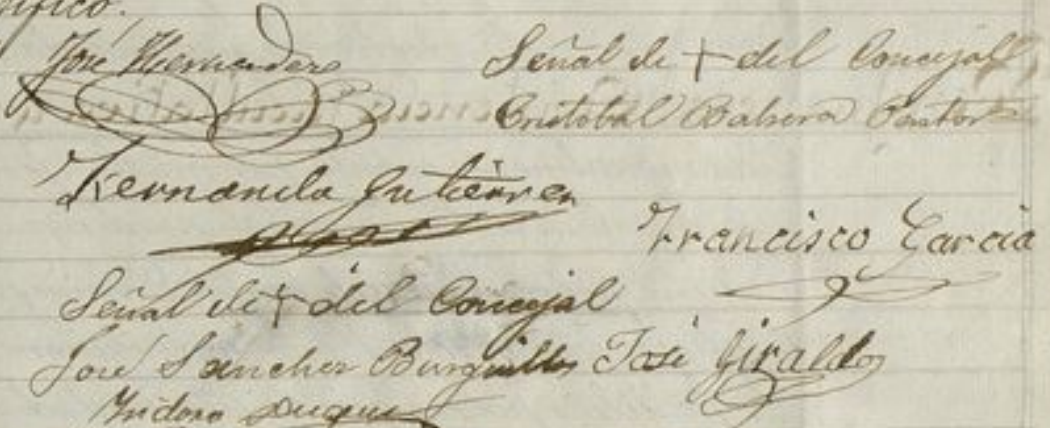 José Hernandez
Señal de + del Concejal
Cristobal Pastor
Fernando Gutierrez
Francisco Garcia
Señal de + del Concejal
José Sanchez Burguillos José Giraldo
Isidoro Duque